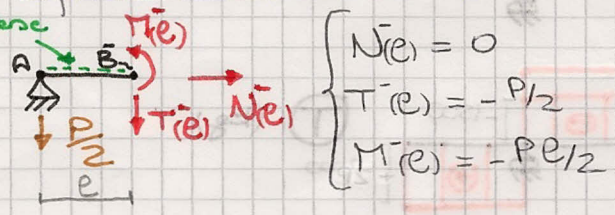 M⁻(e)
A
B⁻
T⁻(e)
N⁻(e)
P/2
e
N⁻(e) = 0
T⁻(e) = - P/2
M⁻(e) = - Pe/2